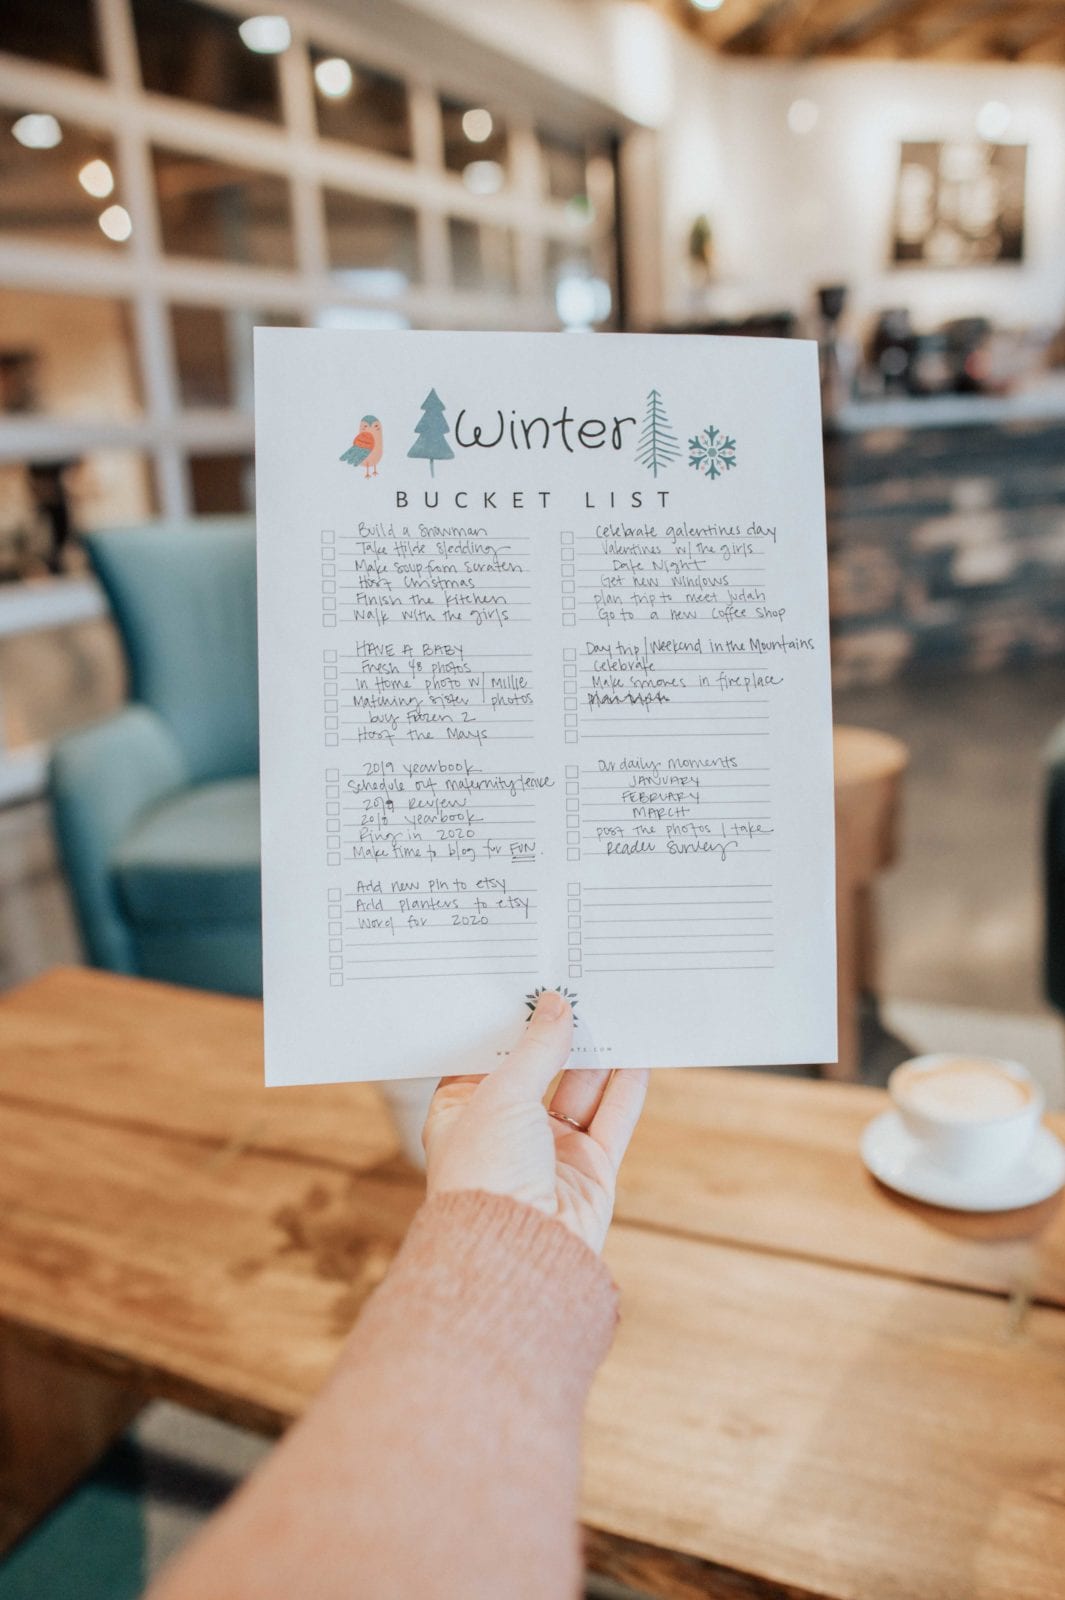 Winter
BUCKET LIST
Build a Snowman
Take Hilde Sledding
Make Soup from Scratch
Host Christmas
Finish the kitchen
Walk with the girls
HAVE A BABY
Fresh 48 photos
in Home photo w/ Millie
Matching sister photos
buy Frozen 2
Host the Mays
2019 yearbook
Schedule out maternity leave
2019 Review
2018 yearbook
Ring in 2020
Make time to blog for FUN.
Add new pin to etsy
Add planters to etsy
Word for 2020
Celebrate galentines day
Valentines w/ the girls
Date Night
Get new windows
plan trip to meet Judah
Go to a new coffee shop
Day trip/Weekend in the Mountains
Celebrate
Make Smores in fireplace
Our daily moments
JANUARY
FEBRUARY
MARCH
post the photos / take
Reader Survey